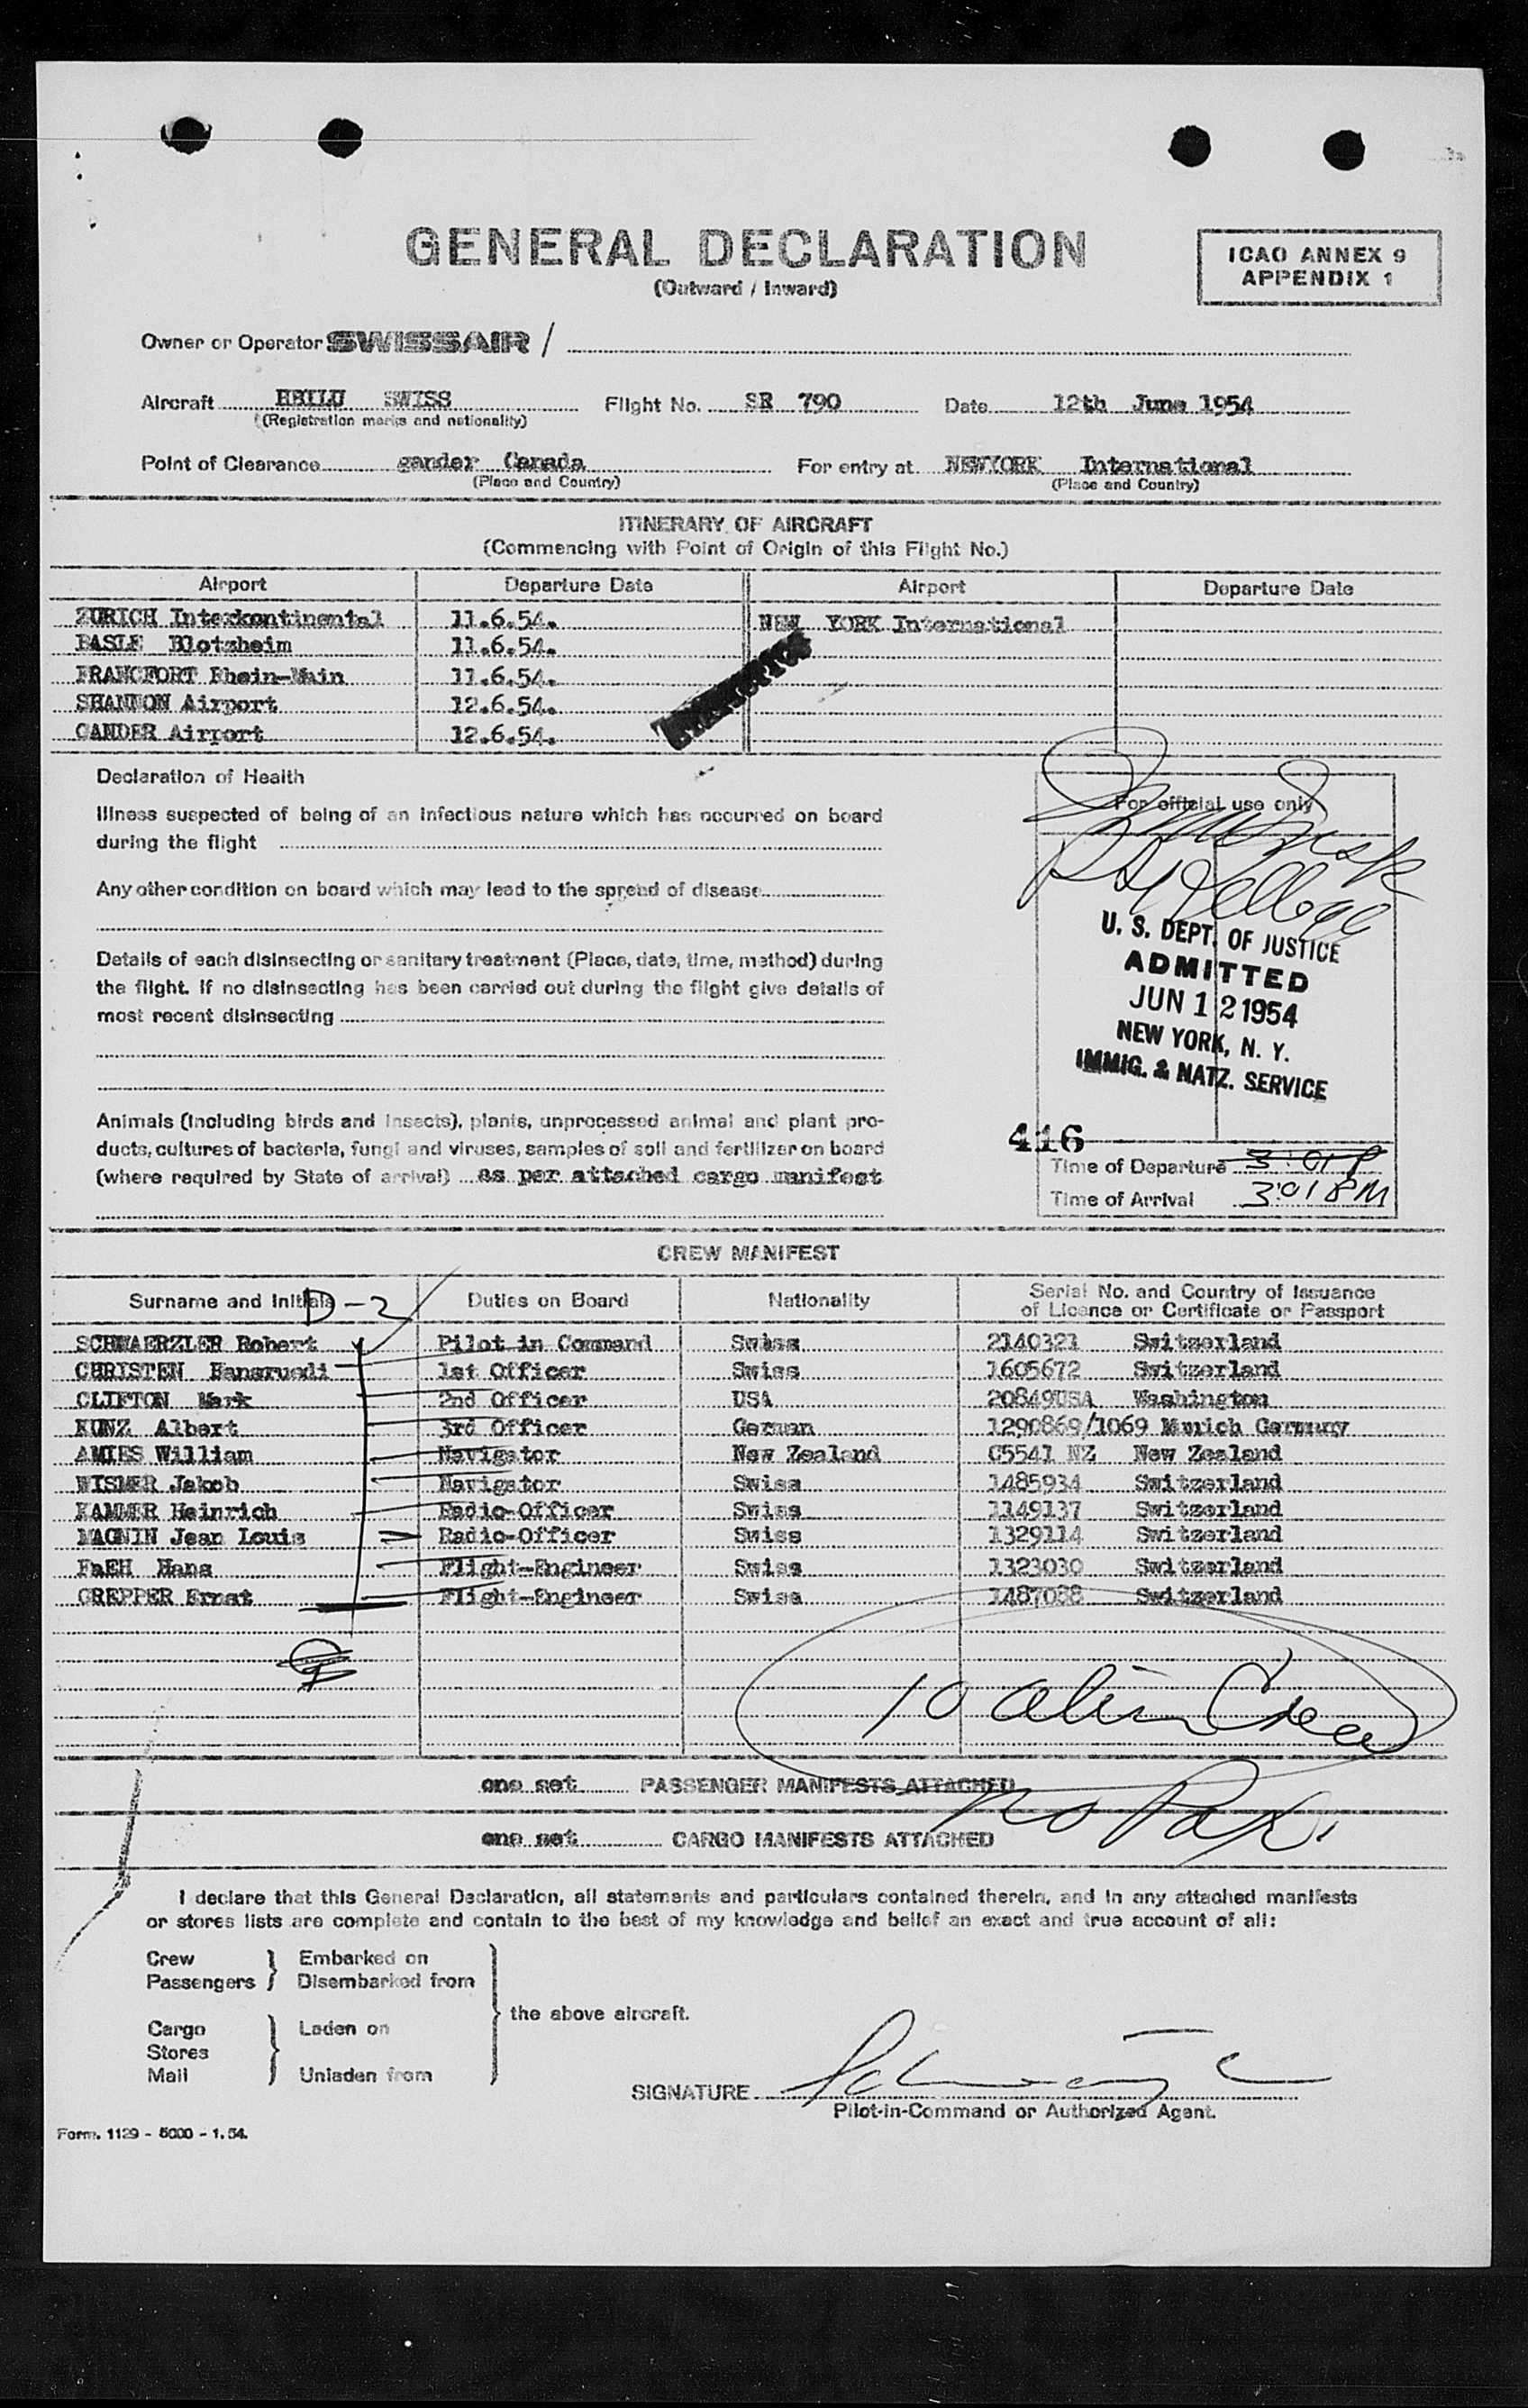 GENERAL DECLARATION
(Outward / Inward)
ICAO ANNEX 9
APPENDIX 1
Owner or Operator SWISSAIR /
Aircraft HBILU SWISS Flight No. SR 790 Date 12th June 1954
(Registration marks and nationality)
Point of Clearance gander Canada For entry at NEWYORK International
(Place and Country) (Place and Country)
ITINERARY OF AIRCRAFT
(Commencing with Point of Origin of this Flight No.)
Airport Departure Date Airport Departure Date
ZURICH Interkontinental 11.6.54. NEW YORK International
BASLE Blotzheim 11.6.54.
FRANCFORT Rhein-Main 11.6.54.
SHANNON Airport 12.6.54.
GANDER Airport 12.6.54.
Declaration of Health
Illness suspected of being of an infectious nature which has occurred on board
during the flight
Any other condition on board which may lead to the spread of disease
Details of each disinsecting or sanitary treatment (Place, date, time, method) during
the flight. If no disinsecting has been carried out during the flight give details of
most recent disinsecting
Animals (including birds and insects), plants, unprocessed animal and plant pro-
ducts, cultures of bacteria, fungi and viruses, samples of soil and fertilizer on board
(where required by State of arrival) as per attached cargo manifest
For official use only
U. S. DEPT. OF JUSTICE
ADMITTED
JUN 12 1954
NEW YORK, N. Y.
IMMIG. & NATZ. SERVICE
416
Time of Departure 3:01 P
Time of Arrival 3:01 PM
CREW MANIFEST
Surname and Initials D-2 Duties on Board Nationality Serial No. and Country of Issuance
of Licence or Certificate or Passport
SCHWAERZLER Robert Pilot in Command Swiss 2140321 Switzerland
CHRISTEN Hansruedi 1st Officer Swiss 1605672 Switzerland
CLIFTON Mark 2nd Officer USA 20849USA Washington
KUNZ Albert 3rd Officer German 1290869/1069 Munich Germany
AMIES William Navigator New Zealand C5541 NZ New Zealand
WISMER Jakob Navigator Swiss 1485934 Switzerland
KAMMER Heinrich Radio-Officer Swiss 1149137 Switzerland
MAGNIN Jean Louis Radio-Officer Swiss 1329114 Switzerland
FaEH Hans Flight-Engineer Swiss 1323030 Switzerland
GREPPER Ernst Flight-Engineer Swiss 1487088 Switzerland
10 alien Crew
one set PASSENGER MANIFESTS ATTACHED
no Pax.
one set CARGO MANIFESTS ATTACHED
I declare that this General Declaration, all statements and particulars contained therein, and in any attached manifests
or stores lists are complete and contain to the best of my knowledge and belief an exact and true account of all:
Crew Embarked on
Passengers Disembarked from
the above aircraft.
Cargo Laden on
Stores
Mail Unladen from
SIGNATURE
Pilot-in-Command or Authorized Agent.
Form. 1129 - 5000 - 1.54.